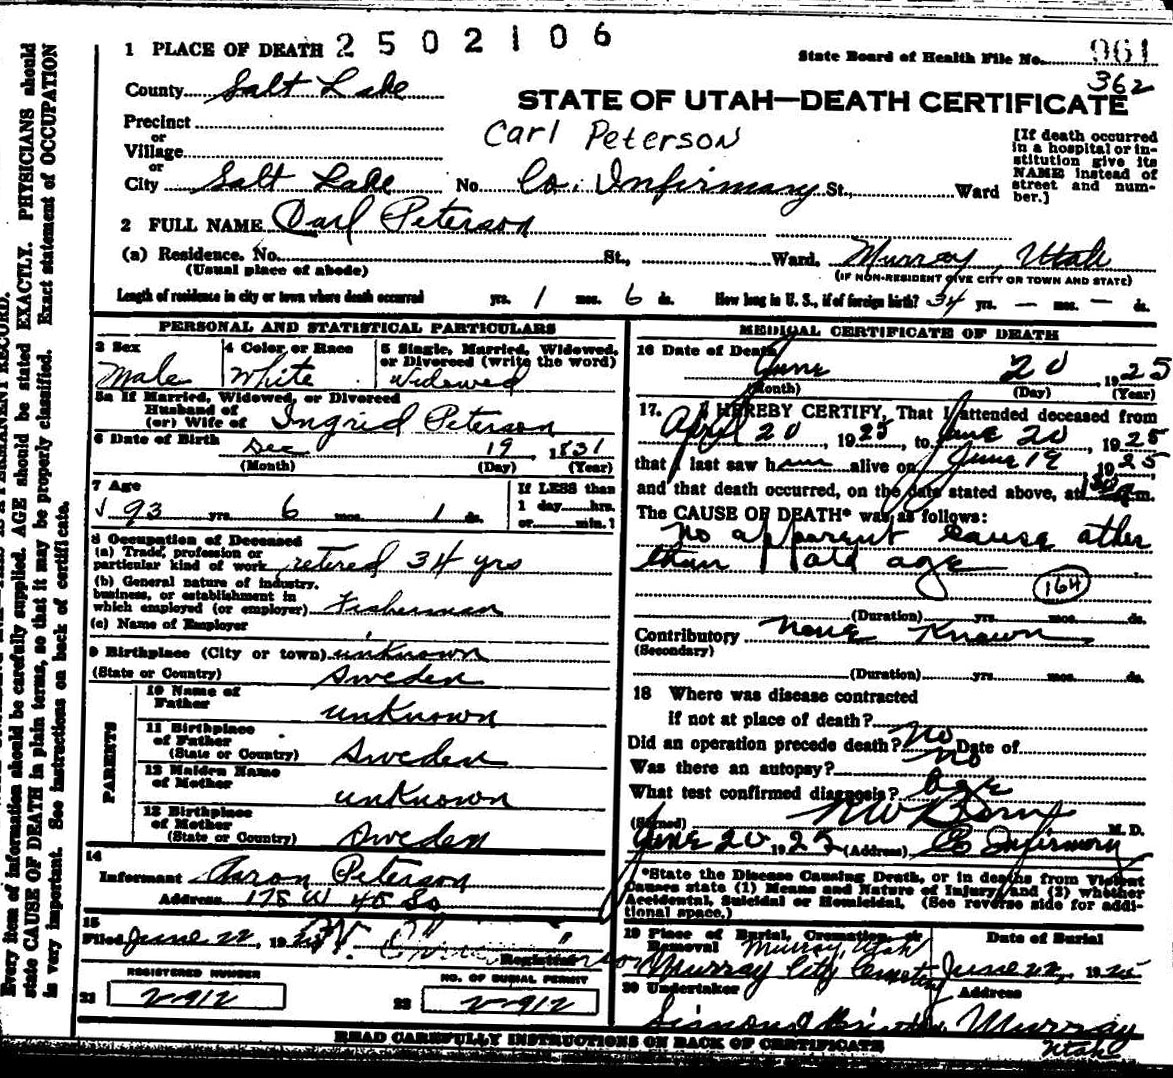 1 PLACE OF DEATH 2 5 0 2 1 0 6
State Board of Health File No. 961
362
County Salt Lake
STATE OF UTAH—DEATH CERTIFICATE
Carl Peterson
Precinct
or
Village
or
City Salt Lake No. Co. Infirmary St., Ward
[If death occurred
in a hospital or in-
stitution give its
NAME instead of
street and num-
ber.]
2 FULL NAME Carl Peterson
(a) Residence. No. St., Ward, Murray, Utah
(Usual place of abode)
(IF NON-RESIDENT GIVE CITY OR TOWN AND STATE)
Length of residence in city or town where death occurred yrs. 1 mos. 6 ds. How long in U. S., if of foreign birth? 34 yrs. — mos. — ds.
PERSONAL AND STATISTICAL PARTICULARS
3 Sex
Male
4 Color or Race
White
5 Single, Married, Widowed,
or Divorced (write the word)
Widowed
5a If Married, Widowed, or Divorced
Husband of
(or) Wife of Ingrid Peterson
6 Date of Birth Dec 19 1831
(Month) (Day) (Year)
7 Age
93 yrs. 6 mos. 1 ds.
If LESS than
1 day hrs.
or min.
8 Occupation of Deceased
(a) Trade, profession or
particular kind of work retired 34 yrs
(b) General nature of industry,
business, or establishment in
which employed (or employer) Fisherman
(c) Name of Employer
9 Birthplace (City or town) unknown
(State or Country) Sweden
PARENTS
10 Name of
Father unknown
11 Birthplace
of Father
(State or Country) Sweden
12 Maiden Name
of Mother unknown
13 Birthplace
of Mother
(State or Country) Sweden
14
Informant Aaron Peterson
Address 175 W 45 So
15
Filed June 22, 19
Registrar
REGISTERED NUMBER
21 2912
NO. OF BURIAL PERMIT
22 2912
MEDICAL CERTIFICATE OF DEATH
16 Date of Death
June 20 1925
(Month) (Day) (Year)
17. I HEREBY CERTIFY, That I attended deceased from
April 20, 1925, to June 20, 1925
that I last saw him alive on June 19, 1925,
and that death occurred, on the date stated above, at m.
The CAUSE OF DEATH* was as follows:
No apparent cause other
than old age
164
(Duration) yrs. mos. ds.
Contributory None Known
(Secondary)
(Duration) yrs. mos. ds.
18 Where was disease contracted
if not at place of death?
Did an operation precede death? No Date of
Was there an autopsy? No
What test confirmed diagnosis? Age
(Signed) M. D.
June 20 1925 (Address) Co Infirmary
*State the Disease Causing Death, or in deaths from Violent
Causes state (1) Means and Nature of Injury, and (2) whether
Accidental, Suicidal or Homicidal. (See reverse side for addi-
tional space.)
19 Place of Burial, Cremation, or
Removal Murray, Utah
Murray City Cemetery
Date of Burial
June 22, 1925
20 Undertaker
Address
Murray
Utah
READ CAREFULLY INSTRUCTIONS ON BACK OF CERTIFICATE
Every item of information should be carefully supplied. AGE should be stated EXACTLY. PHYSICIANS should
state CAUSE OF DEATH in plain terms, so that it may be properly classified. Exact statement of OCCUPATION
is very important. See instructions on back of certificate.